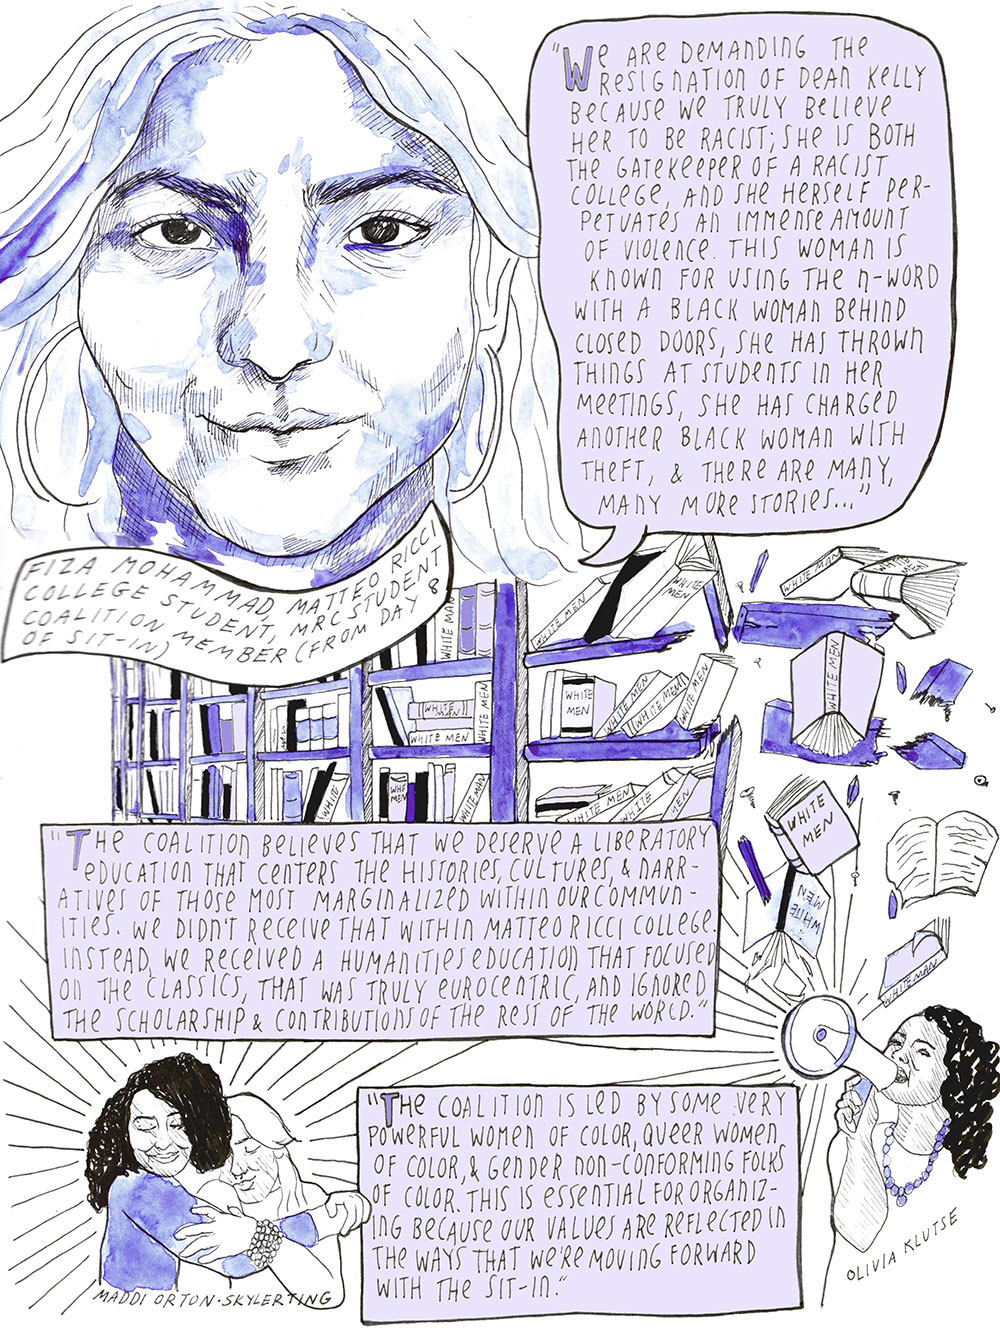 "We are demanding the
resignation of Dean Kelly
because we truly believe
her to be racist; she is both
the gatekeeper of a racist
college, and she herself per-
petuates an immense amount
of violence. This woman is
known for using the n-word
with a black woman behind
closed doors, she has thrown
things at students in her
meetings, she has charged
another black woman with
theft, & there are many,
many more stories..."
Fiza Mohammad, Matteo Ricci
College student, MRC Student
Coalition member (from day 8
of sit-in)
WHITE MAN
WHITE MEN
WHITE MEN
WHITE MAN
WHITE MEN
WHITE MEN
WHITE MEN
WHITE MEN
WHITE MEN
WHITE MEN
WHITE MEN
WHITE MEN
WHITE MEN
WHITE
WHITE MAN
WHITE
WHITE MEN
WHITE MEN
WHITE MAN
"The coalition believes that we deserve a liberatory
education that centers the histories, cultures, & narr-
atives of those most marginalized within our commun-
ities. We didn't receive that within Matteo Ricci College.
Instead, we received a humanities education that focused
on the classics, that was truly Eurocentric, and ignored
the scholarship & contributions of the rest of the world."
"The coalition is led by some very
powerful women of color, queer women
of color, & gender non-conforming folks
of color. This is essential for organiz-
ing because our values are reflected in
the ways that we're moving forward
with the sit-in."
Maddi Orton · Skyler Ting
Olivia Klutse